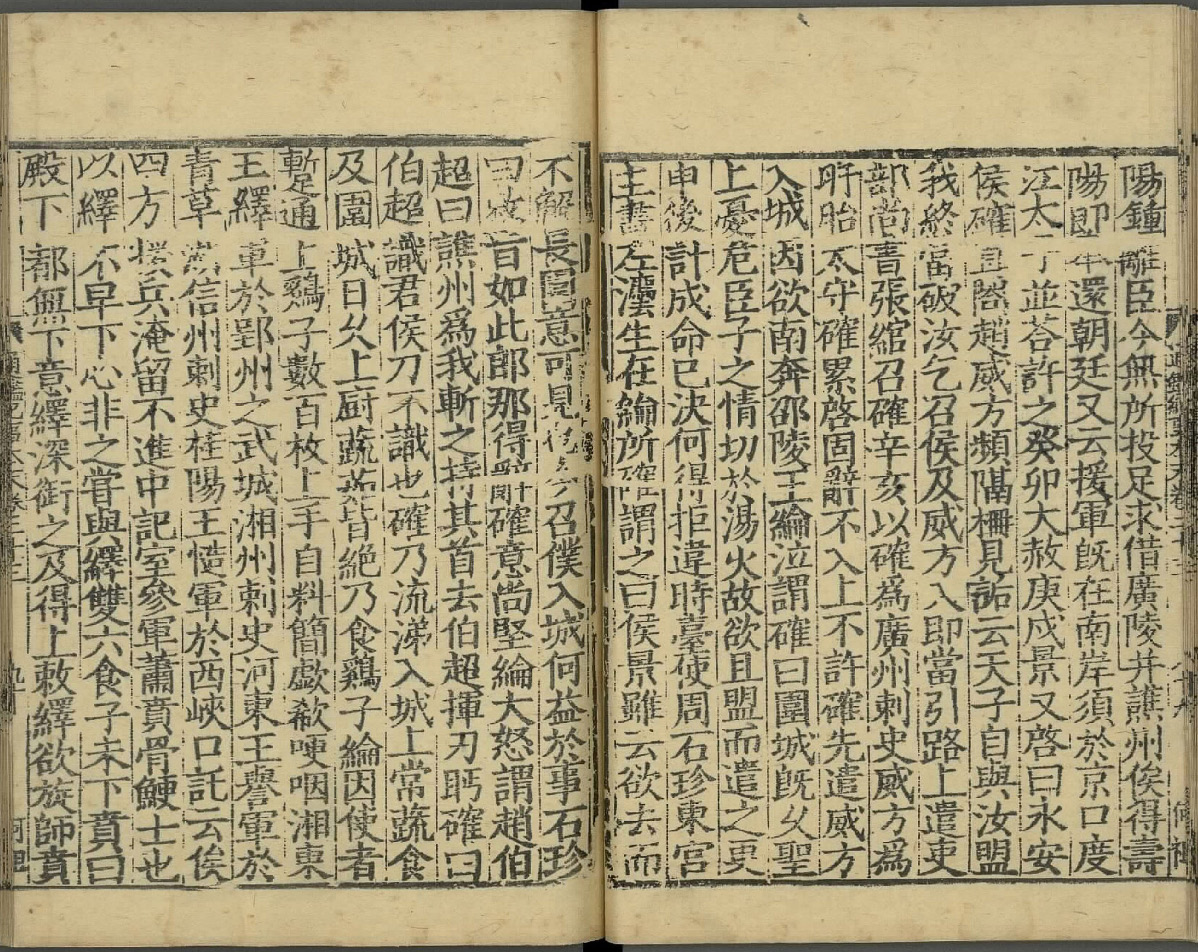 陽鍾離臣今無所投足求借廣陵并譙州俟得壽
陽即奉還朝廷又云援軍旣在南岸須於京口度
江太子並荅許之癸卯大赦庚戌景又啓曰永安
侯確直閤趙威方頻隔柵見詬云天子自與汝盟
我終當破汝乞召侯及威方入即當引路上遣吏
部尚書張綰召確辛亥以確爲廣州刺史威方爲
盱眙太守確累啓固辭不入上不許確先遣威方
入城因欲南奔邵陵王綸泣謂確曰圍城旣久聖
上憂危臣子之情切於湯火故欲且盟而遣之更
申後計成命已決何得拒違時臺使周石珍東宮
主書左灋生在綸所確謂之曰侯景雖云欲去而
不解長圍意可見 今召僕入城何益於事石珍
曰敕旨如此郎那得辭 確意尚堅綸大怒謂趙伯
超曰譙州爲我斬之持其首去伯超揮刃眄確曰
伯超識君侯刀不識也確乃流涕入城上常蔬食
及圍城日久上厨蔬茹皆絶乃食鷄子綸因使者
蹔通上鷄子數百枚上手自料簡歔欷哽咽湘東
王繹軍於郢州之武城湘州刺史河東王譽軍於
青草湖信州刺史桂陽王慥軍於西峽口託云俟
四方援兵淹留不進中記室參軍蕭賁骨鯁士也
以繹不早下心非之嘗與繹雙六食子未下賁曰
殿下都無下意繹深銜之及得上敕繹欲旋師賁